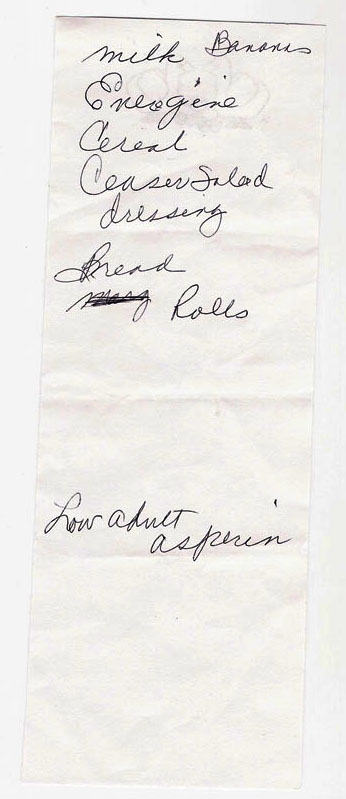 milk Bananas
Energine
Cereal
Ceaser Salad
dressing
Bread
Rolls
Low adult
asperin